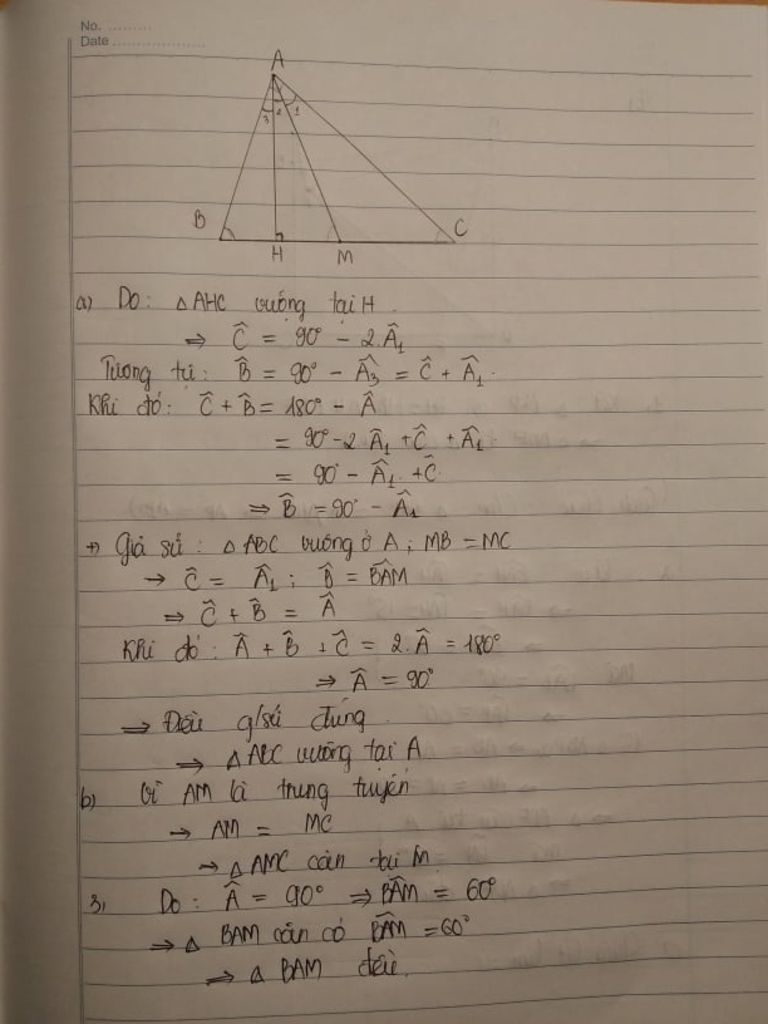 No. ..........
Date ....................
A
3 2 1
B
C
H
M
a) Do: △AHC vuông tại H.
⇒ Ĉ = 90° - 2.Â₁
Tương tự: B̂ = 90° - Â₃ = Ĉ + Â₁.
Khi đó: Ĉ + B̂ = 180° - Â
= 90° - 2 Â₁ + Ĉ + Â₁.
= 90° - Â₁ + Ĉ
⇒ B̂ = 90° - Â₁
+) Giả sử: △ABC vuông ở A; MB = MC
→ Ĉ = Â₁; B̂ = BÂM
⇒ Ĉ + B̂ = Â
Khi đó: Â + B̂ + Ĉ = 2.Â = 180°
⇒ Â = 90°
⇒ Điều g/sử đúng
⇒ △ABC vuông tại A
b) Vì AM là trung tuyến
→ AM = MC
→ △AMC cân tại M
3, Do: Â = 90° ⇒ BÂM = 60°
⇒ △ BAM cân có BÂM = 60°
⇒ △ BAM đều.